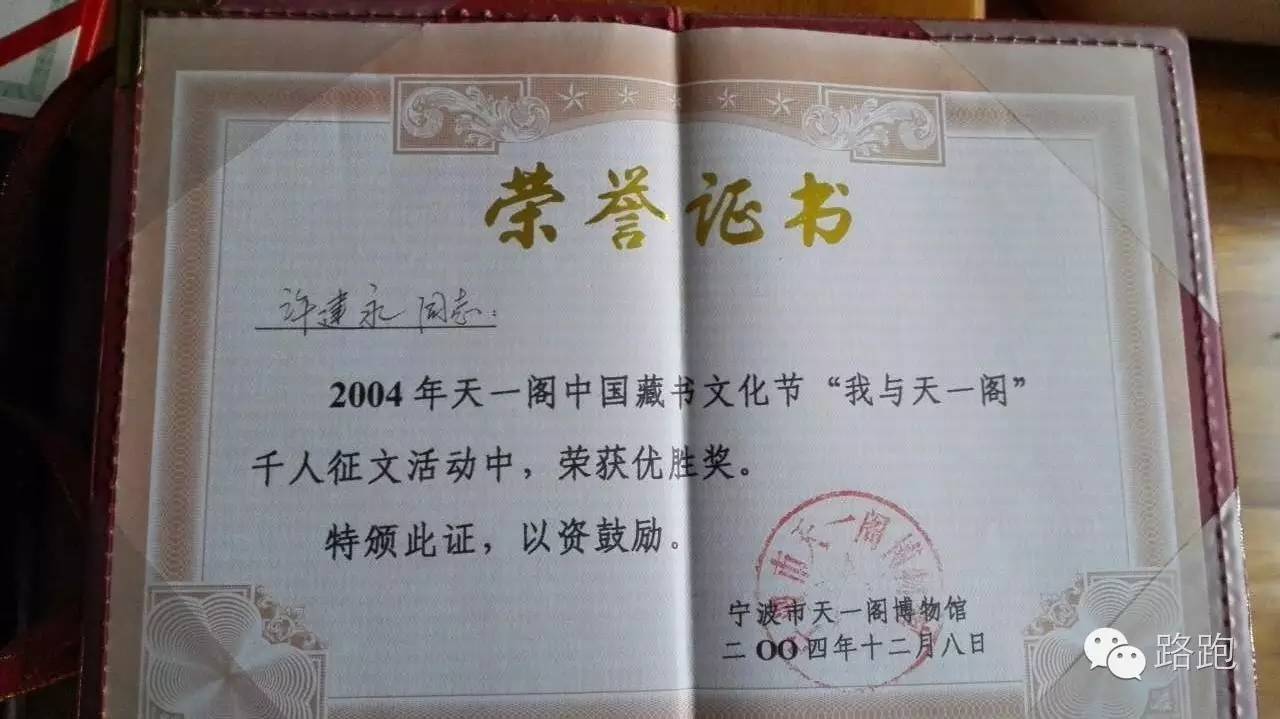 荣誉证书
许建永同志：
2004年天一阁中国藏书文化节“我与天一阁”
千人征文活动中，荣获优胜奖。
特颁此证，以资鼓励。
宁波市天一阁博物馆
二OO四年十二月八日
路跑